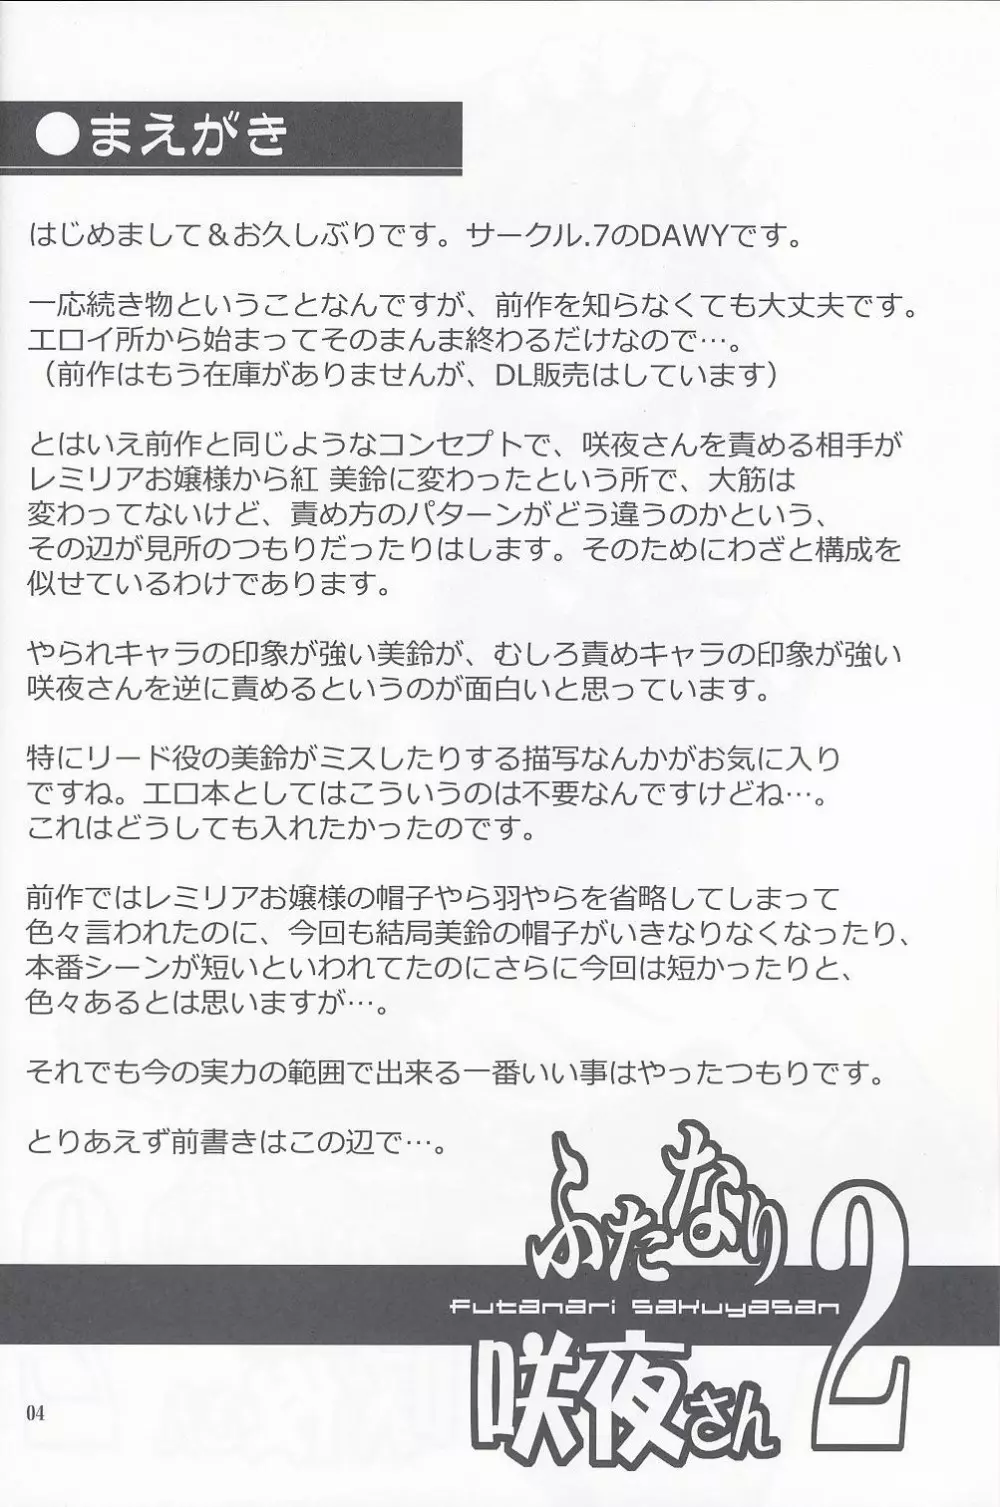 ●まえがき
はじめまして&お久しぶりです。サークル.7のDAWYです。
一応続き物ということなんですが、前作を知らなくても大丈夫です。
エロイ所から始まってそのまんま終わるだけなので…。
（前作はもう在庫がありませんが、DL販売はしています）
とはいえ前作と同じようなコンセプトで、咲夜さんを責める相手が
レミリアお嬢様から紅 美鈴に変わったという所で、大筋は
変わってないけど、責め方のパターンがどう違うのかという、
その辺が見所のつもりだったりはします。そのためにわざと構成を
似せているわけであります。
やられキャラの印象が強い美鈴が、むしろ責めキャラの印象が強い
咲夜さんを逆に責めるというのが面白いと思っています。
特にリード役の美鈴がミスしたりする描写なんかがお気に入り
ですね。エロ本としてはこういうのは不要なんですけどね…。
これはどうしても入れたかったのです。
前作ではレミリアお嬢様の帽子やら羽やらを省略してしまって
色々言われたのに、今回も結局美鈴の帽子がいきなりなくなったり、
本番シーンが短いといわれてたのにさらに今回は短かったりと、
色々あるとは思いますが…。
それでも今の実力の範囲で出来る一番いい事はやったつもりです。
とりあえず前書きはこの辺で…。
ふたなり
Futanari Sakuyasan
咲夜さん
2
04